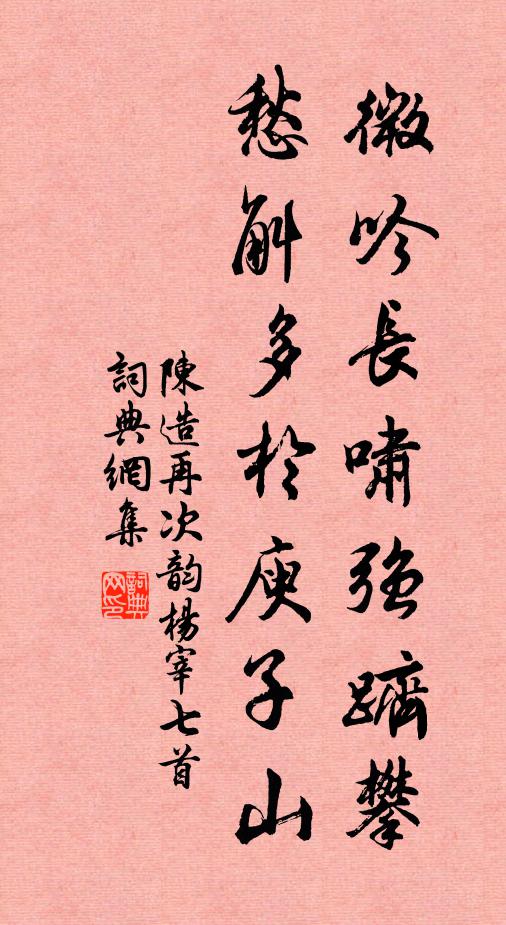 微吟長嘯強躋攀
愁斛多於庾子山
陳造再次韵楊宰七首
詞典網集
詞典網印